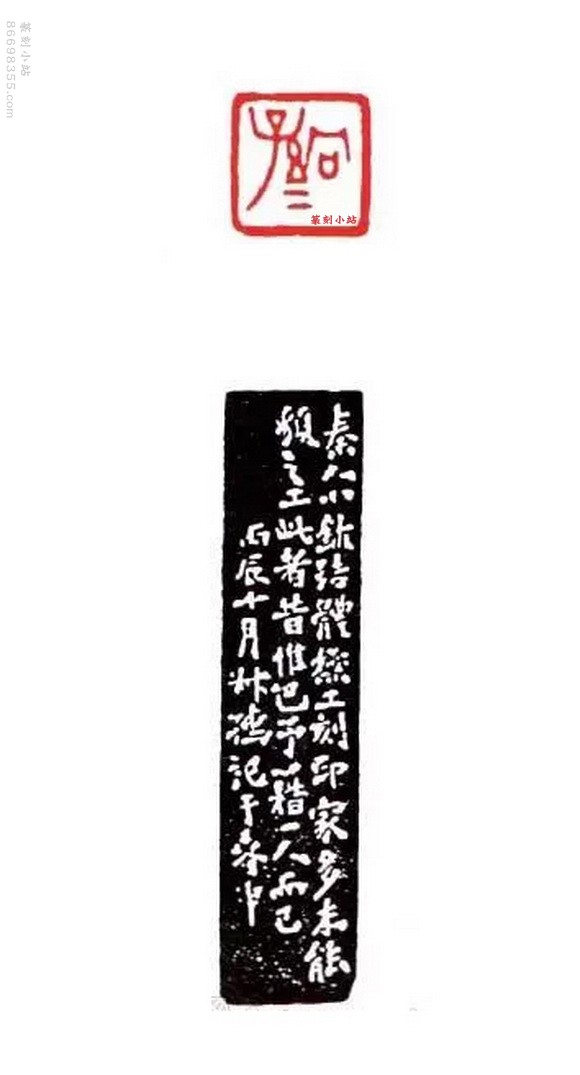 篆刻小站
86698355.com
篆刻小站
秦人小鉨體極工刻印家多未能
類之工此者昔惟巴予藉一人而已
丙辰十月叔孺記于春申